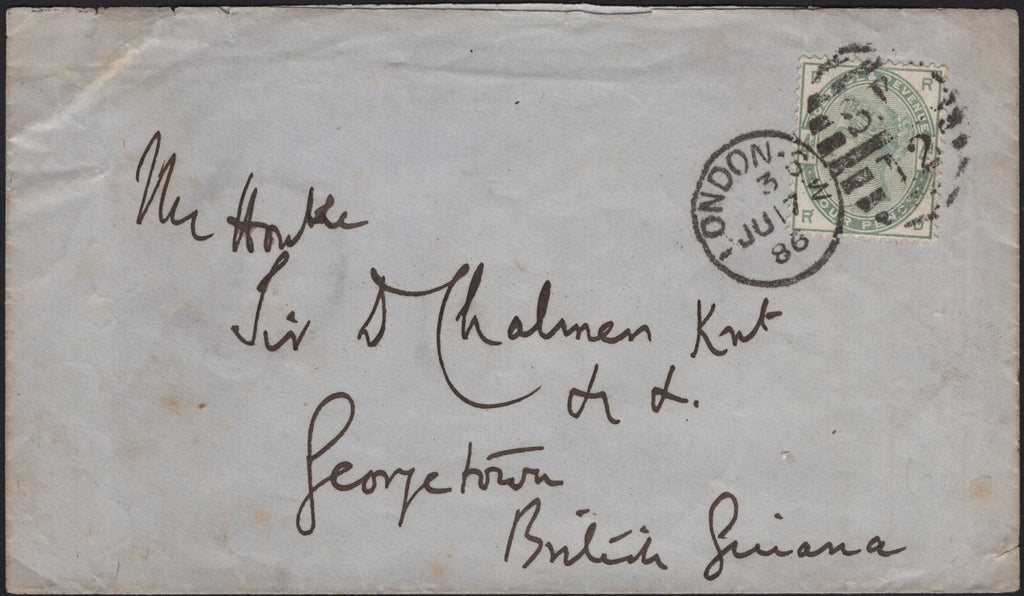 LONDON · S.W
3
JU 17
86
S.W
12
REVENUE
R
R D
The Honble
Sir D Chalmers Knt
&c &c.
Georgetown
British Guiana